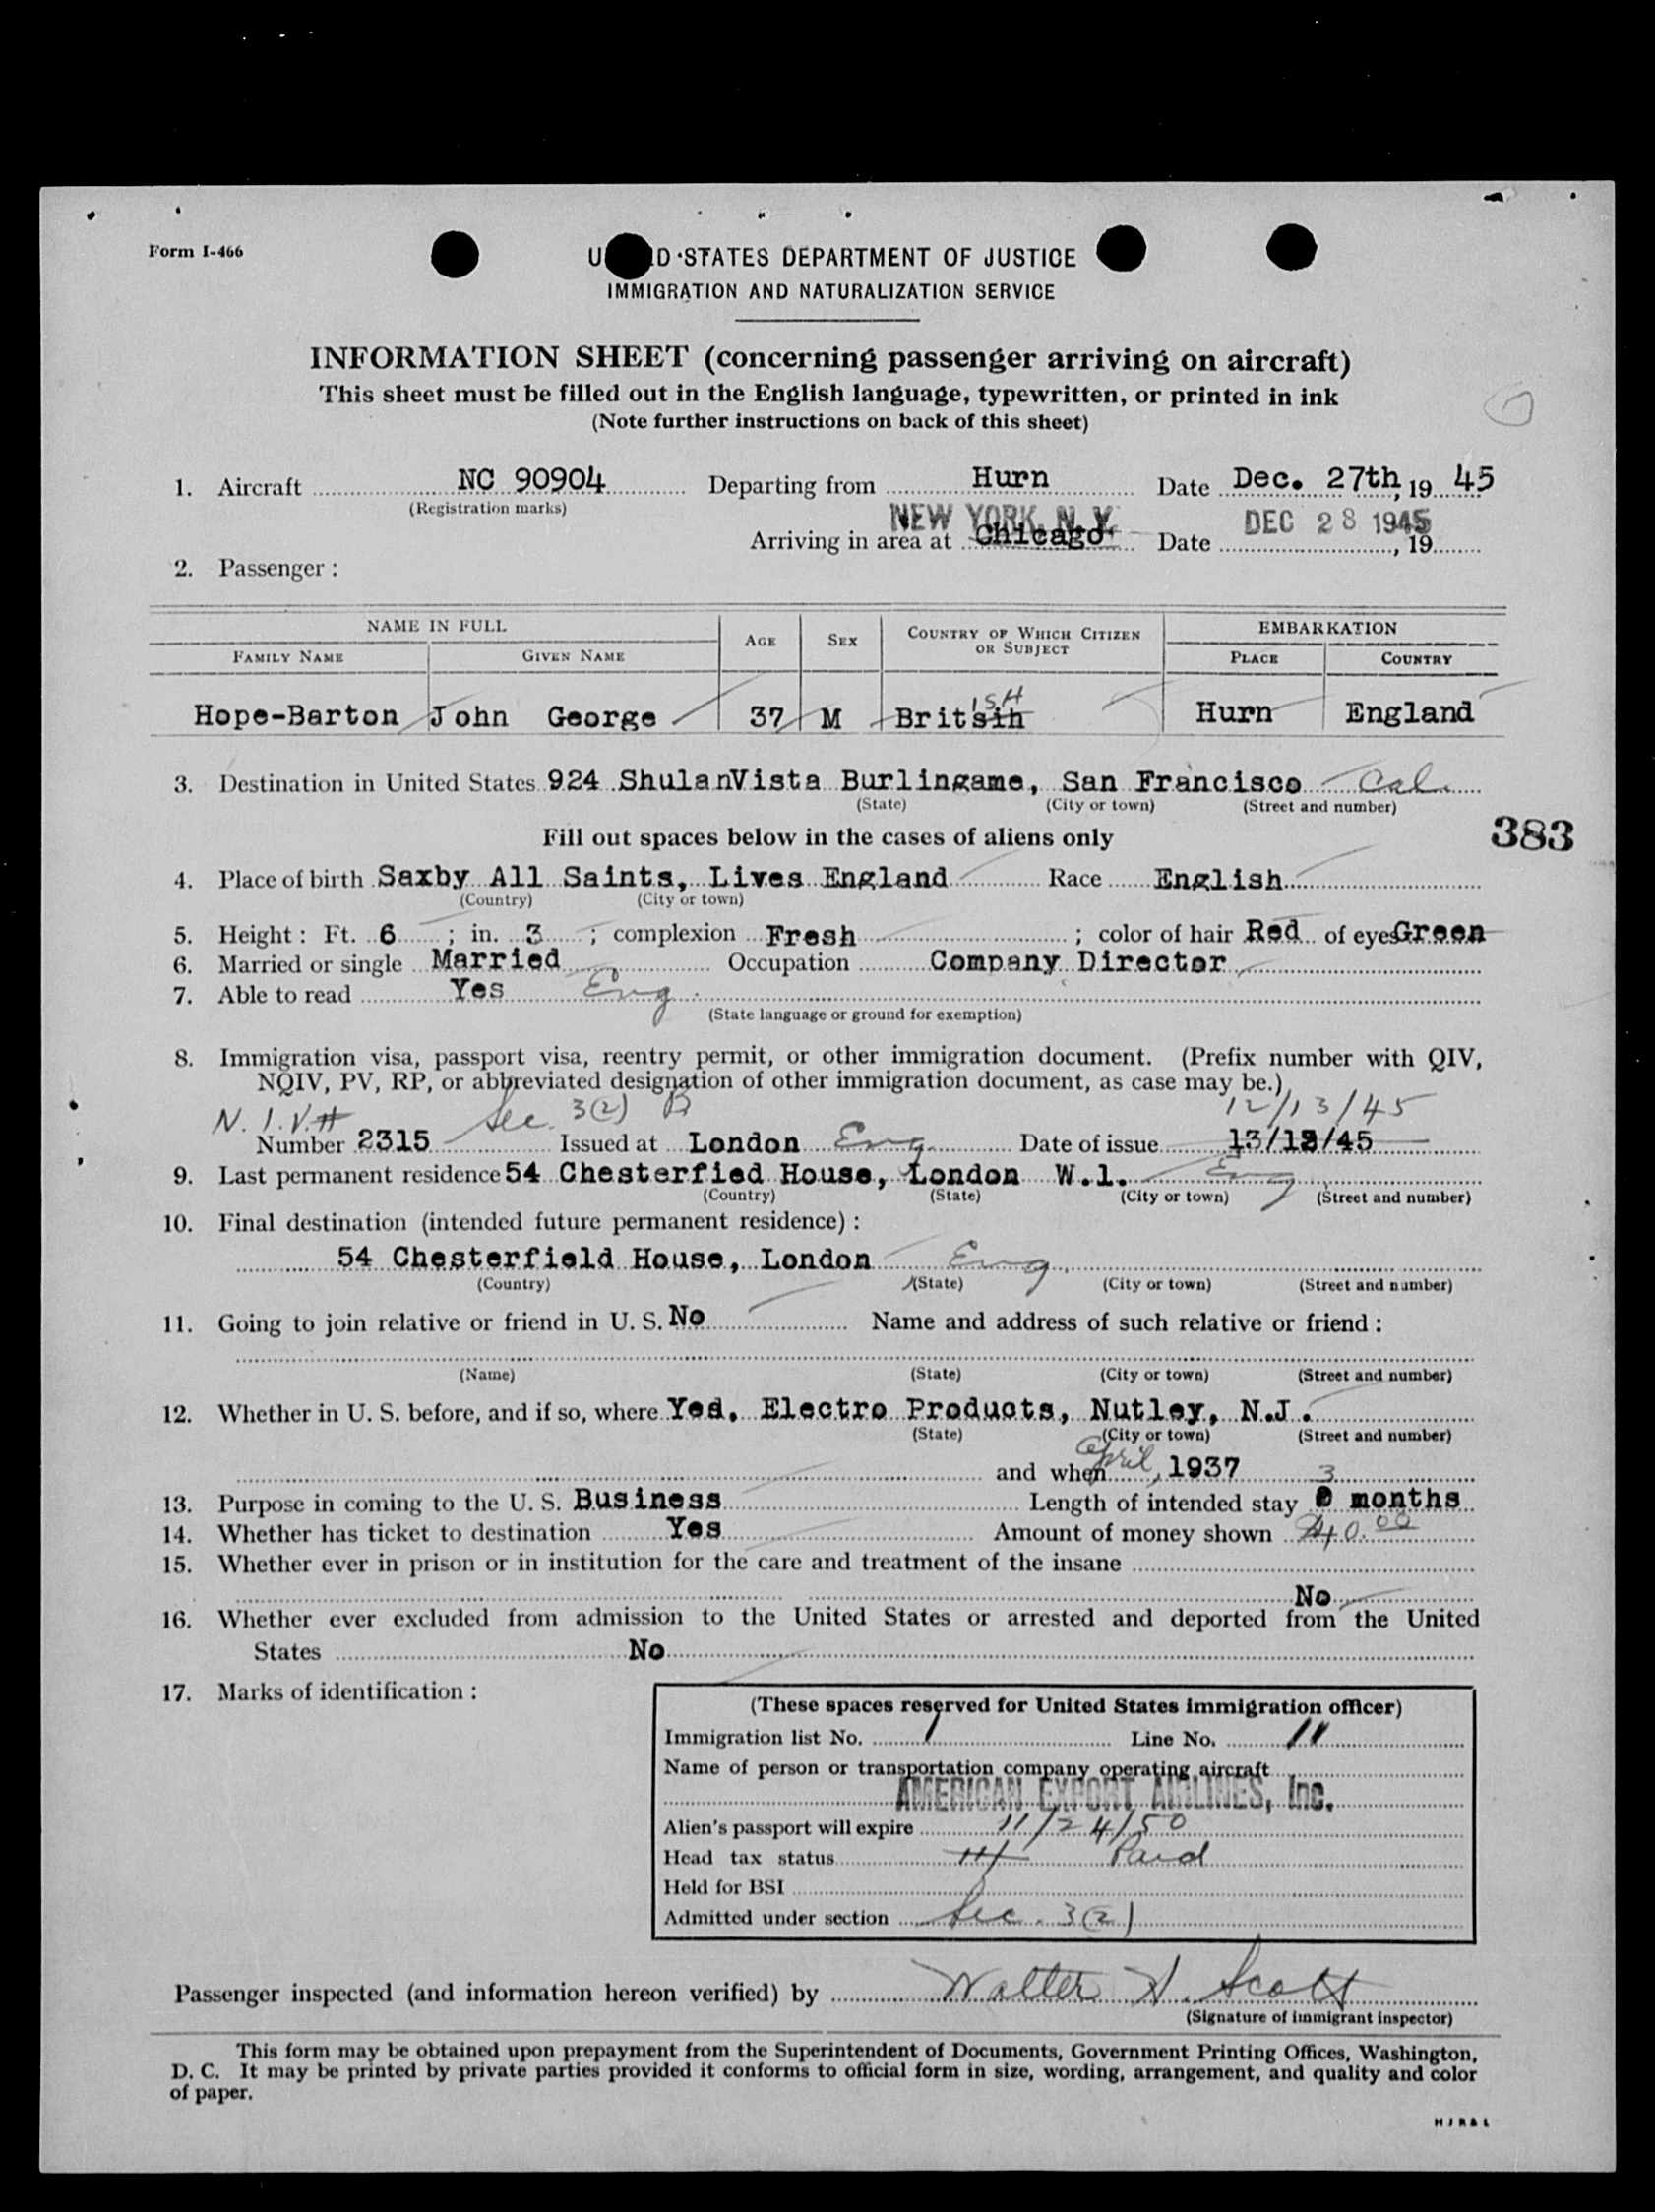 Form I-466
U D STATES DEPARTMENT OF JUSTICE
IMMIGRATION AND NATURALIZATION SERVICE
INFORMATION SHEET (concerning passenger arriving on aircraft)
This sheet must be filled out in the English language, typewritten, or printed in ink
(Note further instructions on back of this sheet)
1. Aircraft NC 90904 Departing from Hurn Date Dec. 27th, 19 45
(Registration marks)
NEW YORK, N. Y. DEC 28 1945
Arriving in area at Chicago Date , 19
2. Passenger :
NAME IN FULL AGE SEX COUNTRY OF WHICH CITIZEN OR SUBJECT EMBARKATION
FAMILY NAME GIVEN NAME PLACE COUNTRY
ISH
Hope-Barton John George 37 M Britsih Hurn England
3. Destination in United States 924 ShulanVista Burlingame, San Francisco Cal.
(State) (City or town) (Street and number)
Fill out spaces below in the cases of aliens only
383
4. Place of birth Saxby All Saints, Lives England Race English
(Country) (City or town)
5. Height : Ft. 6 ; in. 3 ; complexion Fresh ; color of hair Red of eyes Green
6. Married or single Married Occupation Company Director
7. Able to read Yes Eng.
(State language or ground for exemption)
8. Immigration visa, passport visa, reentry permit, or other immigration document. (Prefix number with QIV,
NQIV, PV, RP, or abbreviated designation of other immigration document, as case may be.)
N.I.V.# Sec. 3(2) B 12/13/45
Number 2315 Issued at London Eng. Date of issue 13/12/45
9. Last permanent residence 54 Chesterfied House, London W.1. Eng
(Country) (State) (City or town) (Street and number)
10. Final destination (intended future permanent residence) :
54 Chesterfield House, London Eng.
(Country) (State) (City or town) (Street and number)
11. Going to join relative or friend in U. S. No Name and address of such relative or friend :
(Name) (State) (City or town) (Street and number)
12. Whether in U. S. before, and if so, where Yes, Electro Products, Nutley, N.J.
(State) (City or town) (Street and number)
and when April, 1937
3
13. Purpose in coming to the U. S. Business Length of intended stay months
14. Whether has ticket to destination Yes Amount of money shown 40.00
15. Whether ever in prison or in institution for the care and treatment of the insane
No
16. Whether ever excluded from admission to the United States or arrested and deported from the United
States No
17. Marks of identification :
(These spaces reserved for United States immigration officer)
Immigration list No. 1 Line No. 11
Name of person or transportation company operating aircraft
AMERICAN EXPORT AIRLINES, Inc.
Alien's passport will expire 11/24/50
Head tax status Paid
Held for BSI
Admitted under section Sec. 3(2)
Passenger inspected (and information hereon verified) by Walter Scott
(Signature of immigrant inspector)
This form may be obtained upon prepayment from the Superintendent of Documents, Government Printing Offices, Washington,
D. C. It may be printed by private parties provided it conforms to official form in size, wording, arrangement, and quality and color
of paper.
H J R & L